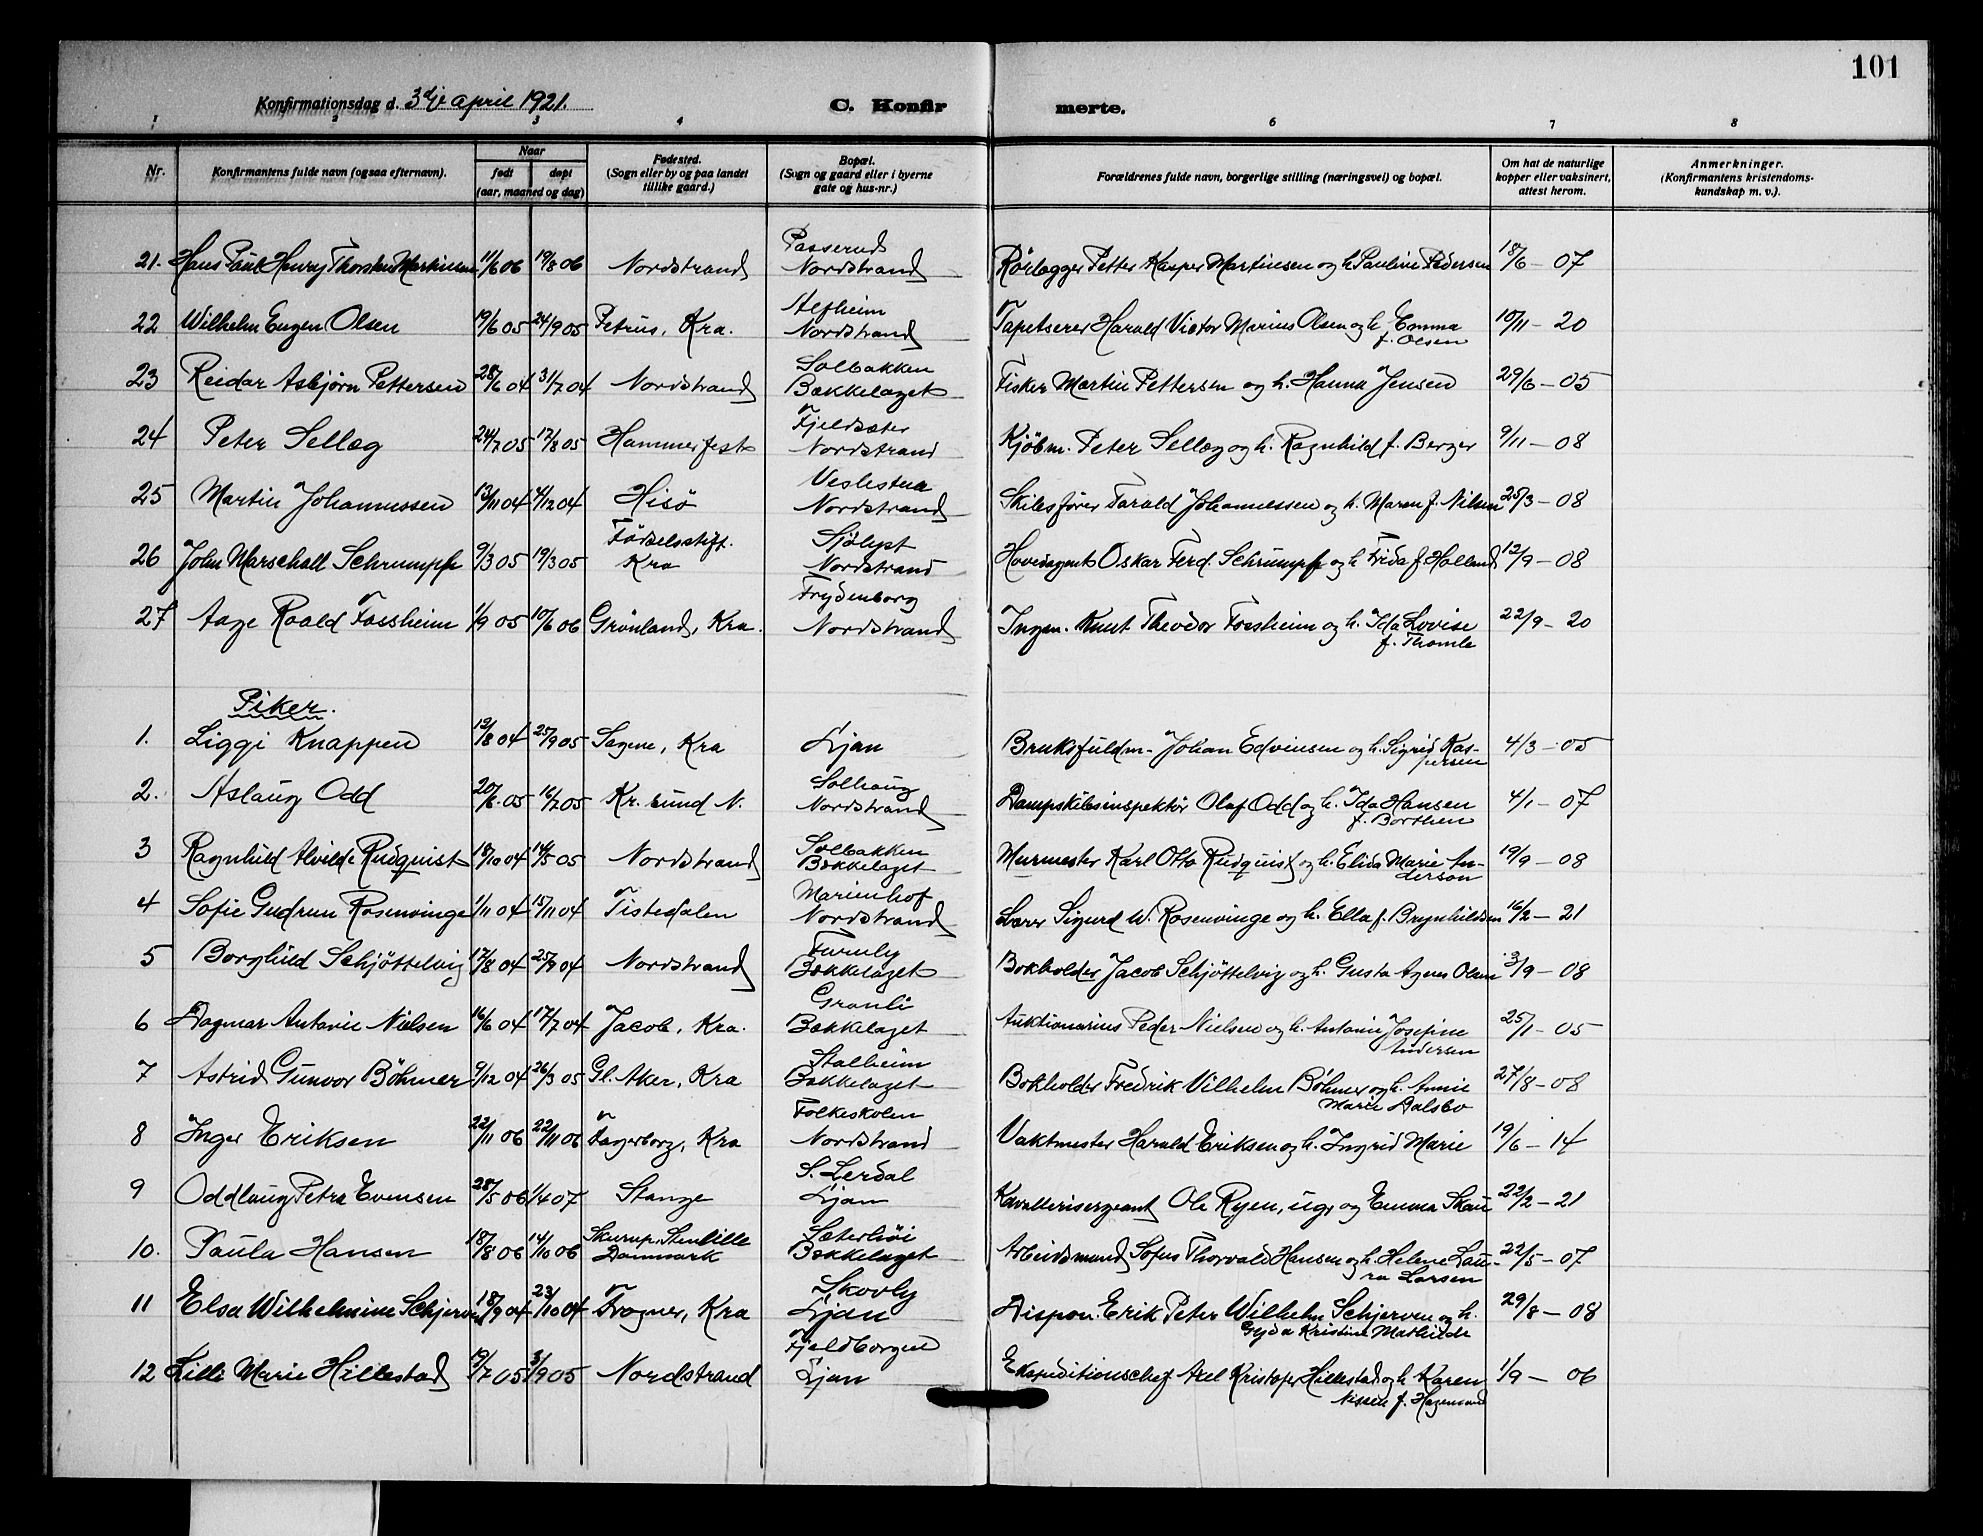 101
Konfirmationsdag d. 3dje april 1921. C. Konfir merte.
1 2 3 4 6 7 8
Nr. Konfirmantens fulde navn (ogsaa efternavn). Naar født døpt (aar, maaned og dag) Fødested. (Sogn eller by og paa landet tillike gaard.) Bopæl. (Sogn og gaard eller i byerne gate og hus-nr.) Forældrenes fulde navn, borgerlige stilling (næringsvei) og bopæl. Om hat de naturlige kopper eller vaksinert, attest herom. Anmerkninger. (Konfirmantens kristendoms-kundskap m. v.).
21. Hans Paul Henry Thorstein Martinsen 11/6 06 19/8 06 Nordstrand Passerud Nordstrand Rørlægger Petter Kasper Martinsen og h. Pauline Pedersen 18/6 - 07
22 Wilhelm Eugen Olsen 19/6 05 24/9 05 Petrus, Kra. Alfheim Nordstrand Tapetserer Harald Victor Marius Olsen og h. Emma f. Olsen 10/11 - 20
23 Reidar Asbjørn Pettersen 28/6 04 31/7 04 Nordstrand Solbakken Bækkelaget Fisker Martin Pettersen og h. Hanna Jensen 29/6 - 05
24 Peter Sellæg 24/7 05 17/8 05 Hammerfest Fjeldsæter Nordstrand Kjøbm. Peter Sellæg og h. Ragnhild f. Berger 9/11 - 08
25 Martin Johannessen 13/11 04 4/12 04 Hisö Veslestua Nordstrand Skibsfører Tarald Johannessen og h. Maren f. Nilsen 25/3 - 08
26 John Marschall Schrumpf 9/3 05 19/3 05 Födselsstift. Kra Sjölyst Nordstrand Hovedagent Oskar Ferd. Schrumpf og h. Frida f. Holland 12/9 - 08
27 Aage Roald Fossheim 1/9 05 10/6 06 Grönland, Kra. Frydenborg Nordstrand Ingen. Knut Theodor Fossheim og h. Ida Lovise f. Thomle 22/9 - 20
Piker.
1. Liggi Knappen 12/8 04 25/9 05 Sagene, Kra Ljan Bruksfuldm- Johan Edvinsen og h. Sigrid Kaspersen 4/3 - 05
2. Aslaug Odd 20/6. 05 16/7 05 Kr. sund N. Solhaug Nordstrand Dampskibsinspektör Olaf Odd og h. Ida Hansen f. Borthen 4/1 - 07
3 Ragnhild Alvilde Rudquist 18/10 04 14/5 05 Nordstrand Solbakken Bækkelaget Murmester Karl Otto Rudquist og h. Elida Marie Anderson 19/9 - 08
4 Sofie Gudrun Rosenvinge 1/11 04 15/11 04 Tistedalen Marienhof Nordstrand Lærer Sigurd W. Rosenvinge og h. Ella f. Brynhildsen 16/2 - 21
5 Borghild Schjöttelvig 17/8 04 25/9 04 Nordstrand Furuly Bækkelaget Bokholder Jacob Schjöttelvig og h. Gusta Agnes Olsen 3/9 - 08
6 Dagmar Antonie Nielsen 16/6 04 17/7 04 Jacob, Kra. Granli Bækkelaget Auktionarius Peder Nielsen og h. Antonie Josefine Andersen 25/1 - 05
7 Astrid Gunvor Böhmer 9/12 04 26/3 05 Gl. Aker, Kra Stalheim Bækkelaget Bokholder Fredrik Vilhelm Böhmer og h. Annie Marie Dalsbo 27/8 - 08
8 Inger Eriksen 22/11 06 22/11 06 Fagerborg, Kra Folkeskolen Nordstrand Vaktmester Harald Eriksen og h. Ingrid Marie 19/6 - 14
9 Oddlaug Petra Evensen 28/5 06 1/4 07 Stange S. Lerdal Ljan Kavallerisergeant Ole Ryen, ug, og Emma Skau 22/2 - 21
10. Paula Hansen 18/8 06 14/10 06 Skurup. Stenlille Danmark Sæterhöi Bækkelaget Arbeidsmand Sofus Thorvald Hansen og h. Helene Laura Larsen 22/5 - 07
11 Elsa Wilhelmine Schjerven 18/9 04 23/10 04 Frogner, Kra Skovly Ljan Dispon. Erik Peter Wilhelm Schjerven og h. Gyda Kristine Mathilde 29/8 - 08
12 Lilli Marie Hillestad 19/7 05 3/9 05 Nordstrand Fjeldborgen Ljan Ekspeditionschef Axel Kristofer Hillestad og h. Karen Nissen f. Hagemand 1/9 - 06